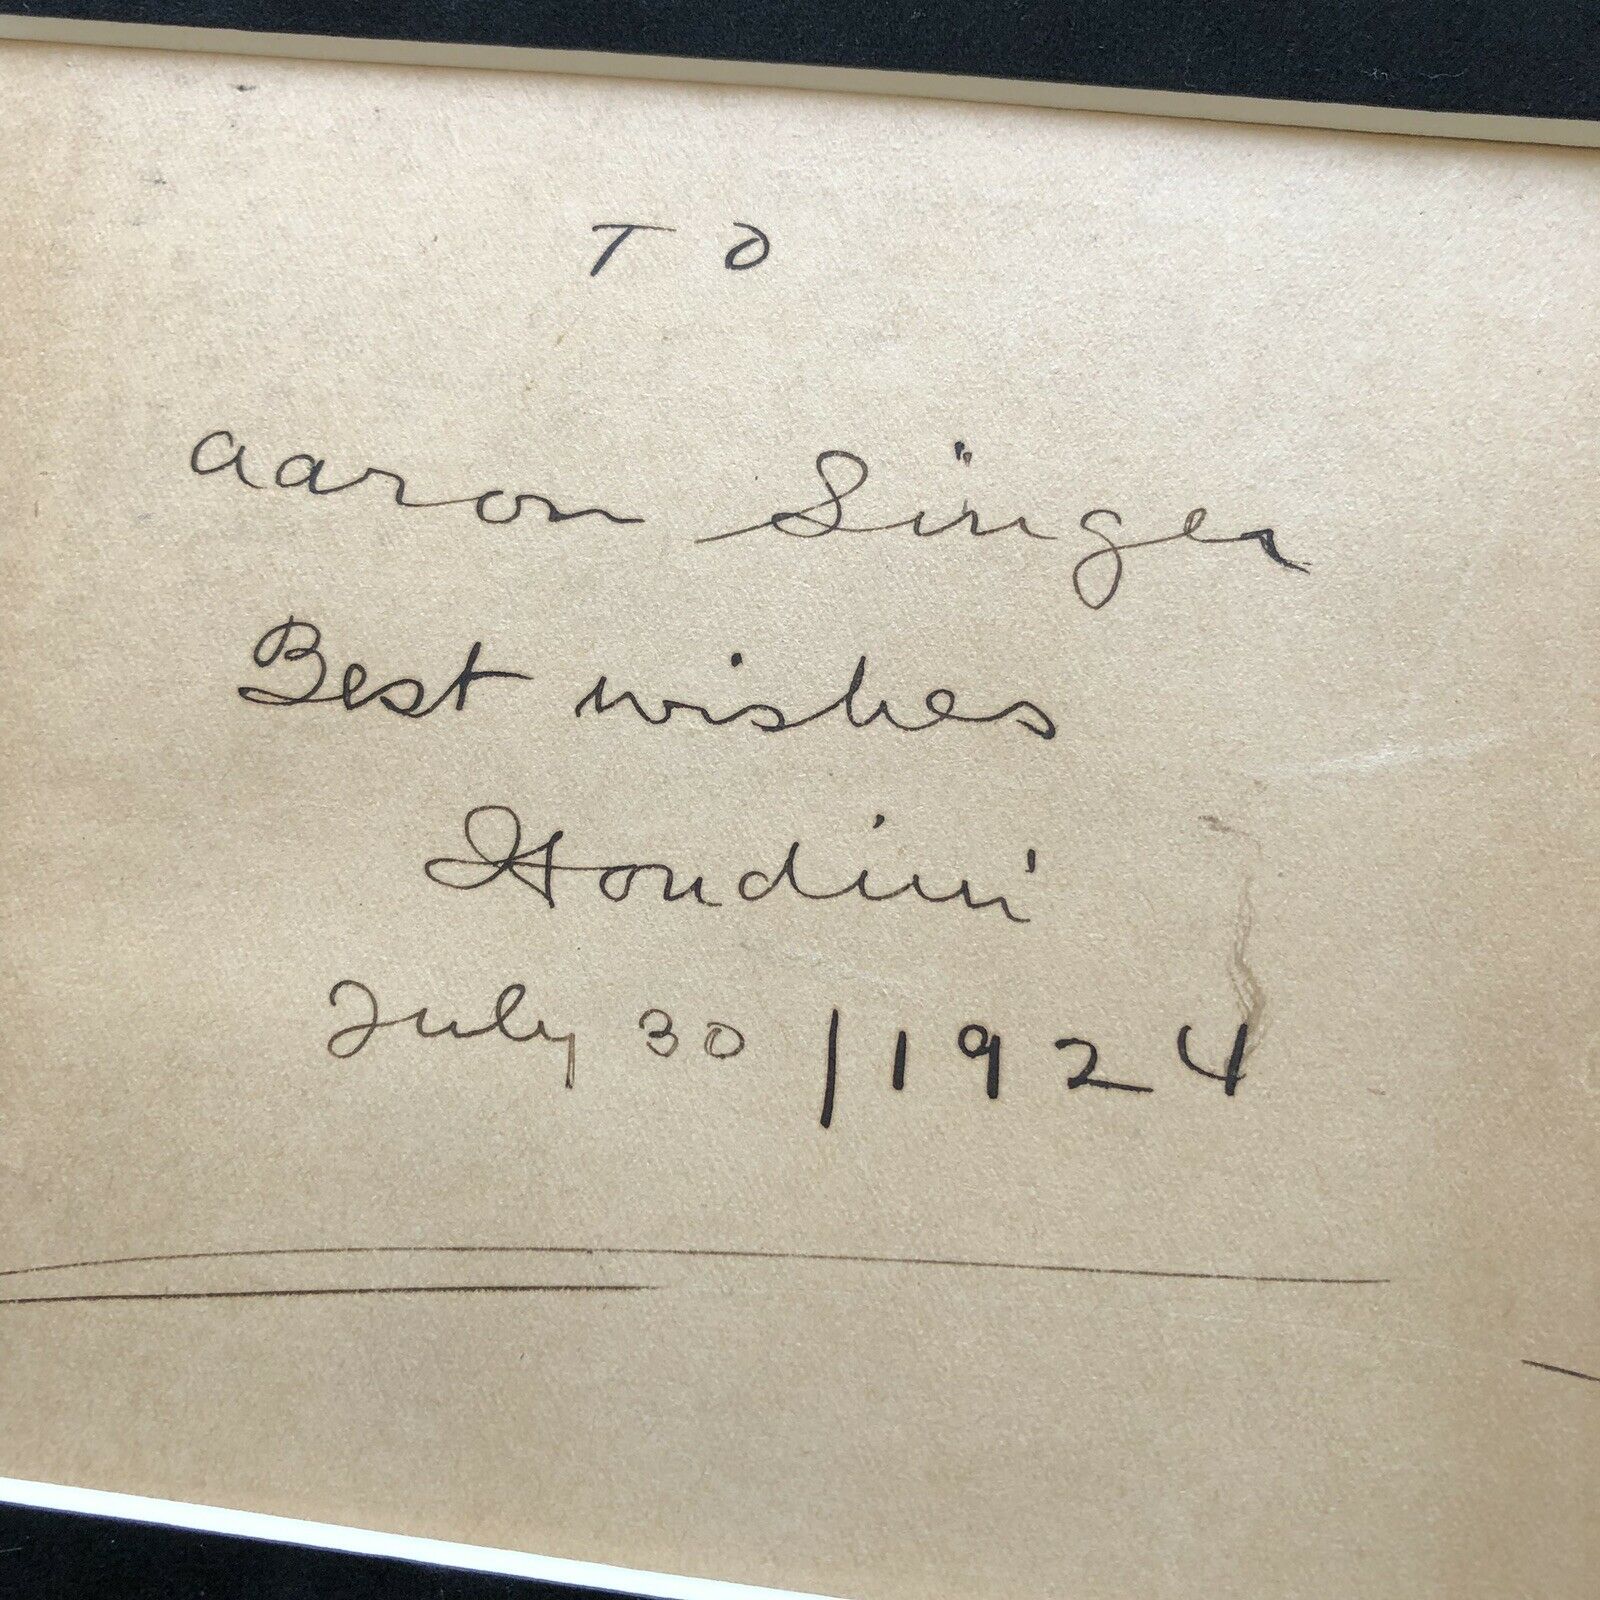 TO
Aaron Singer
Best wishes
Houdini
July 30/1924